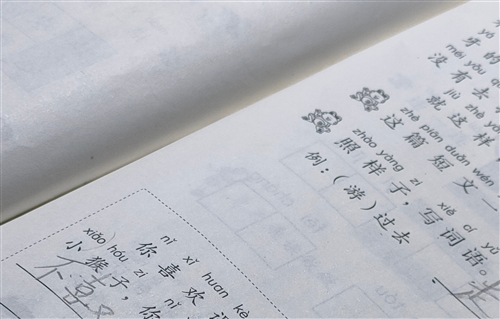 yá
牙的
méi yǒu q
没有去
jiù zhè yà
就这样
zhè piān duǎn wén
这篇短文一
zhào yàng zi xiě cí yǔ
照样子，写词语。
例：（游）过去
nǐ xǐ huan kè
你喜欢
xiǎo hóu zi nǐ
小猴子，你
不喜欢